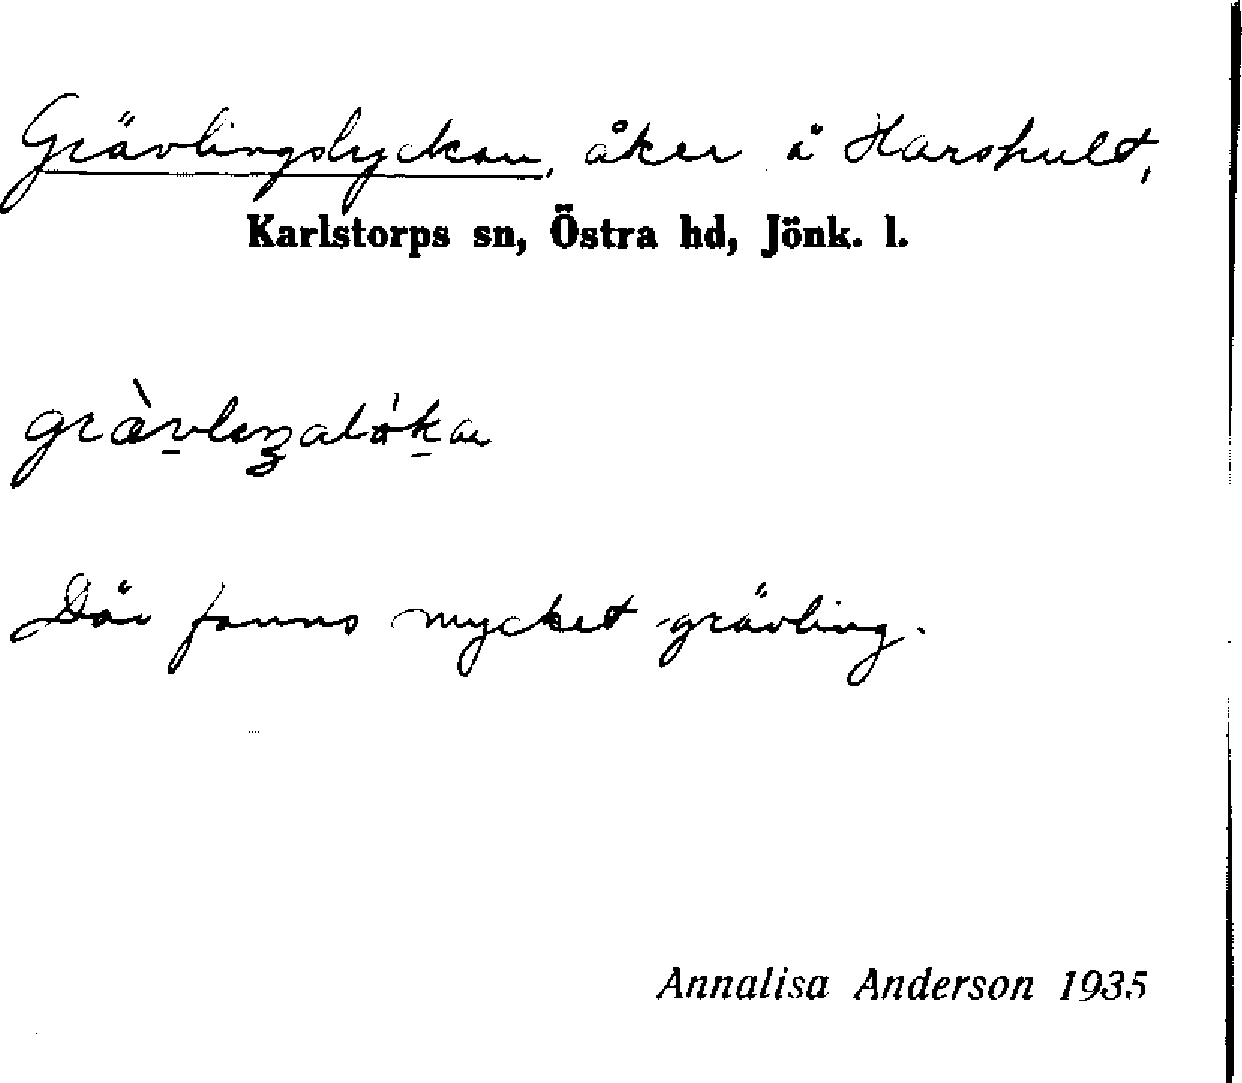 Grävlingslyckan, åker å Harshult,
Karlstorps sn, Östra hd, Jönk. l.
Där fanns mycket grävling.
Annalisa Anderson 1935